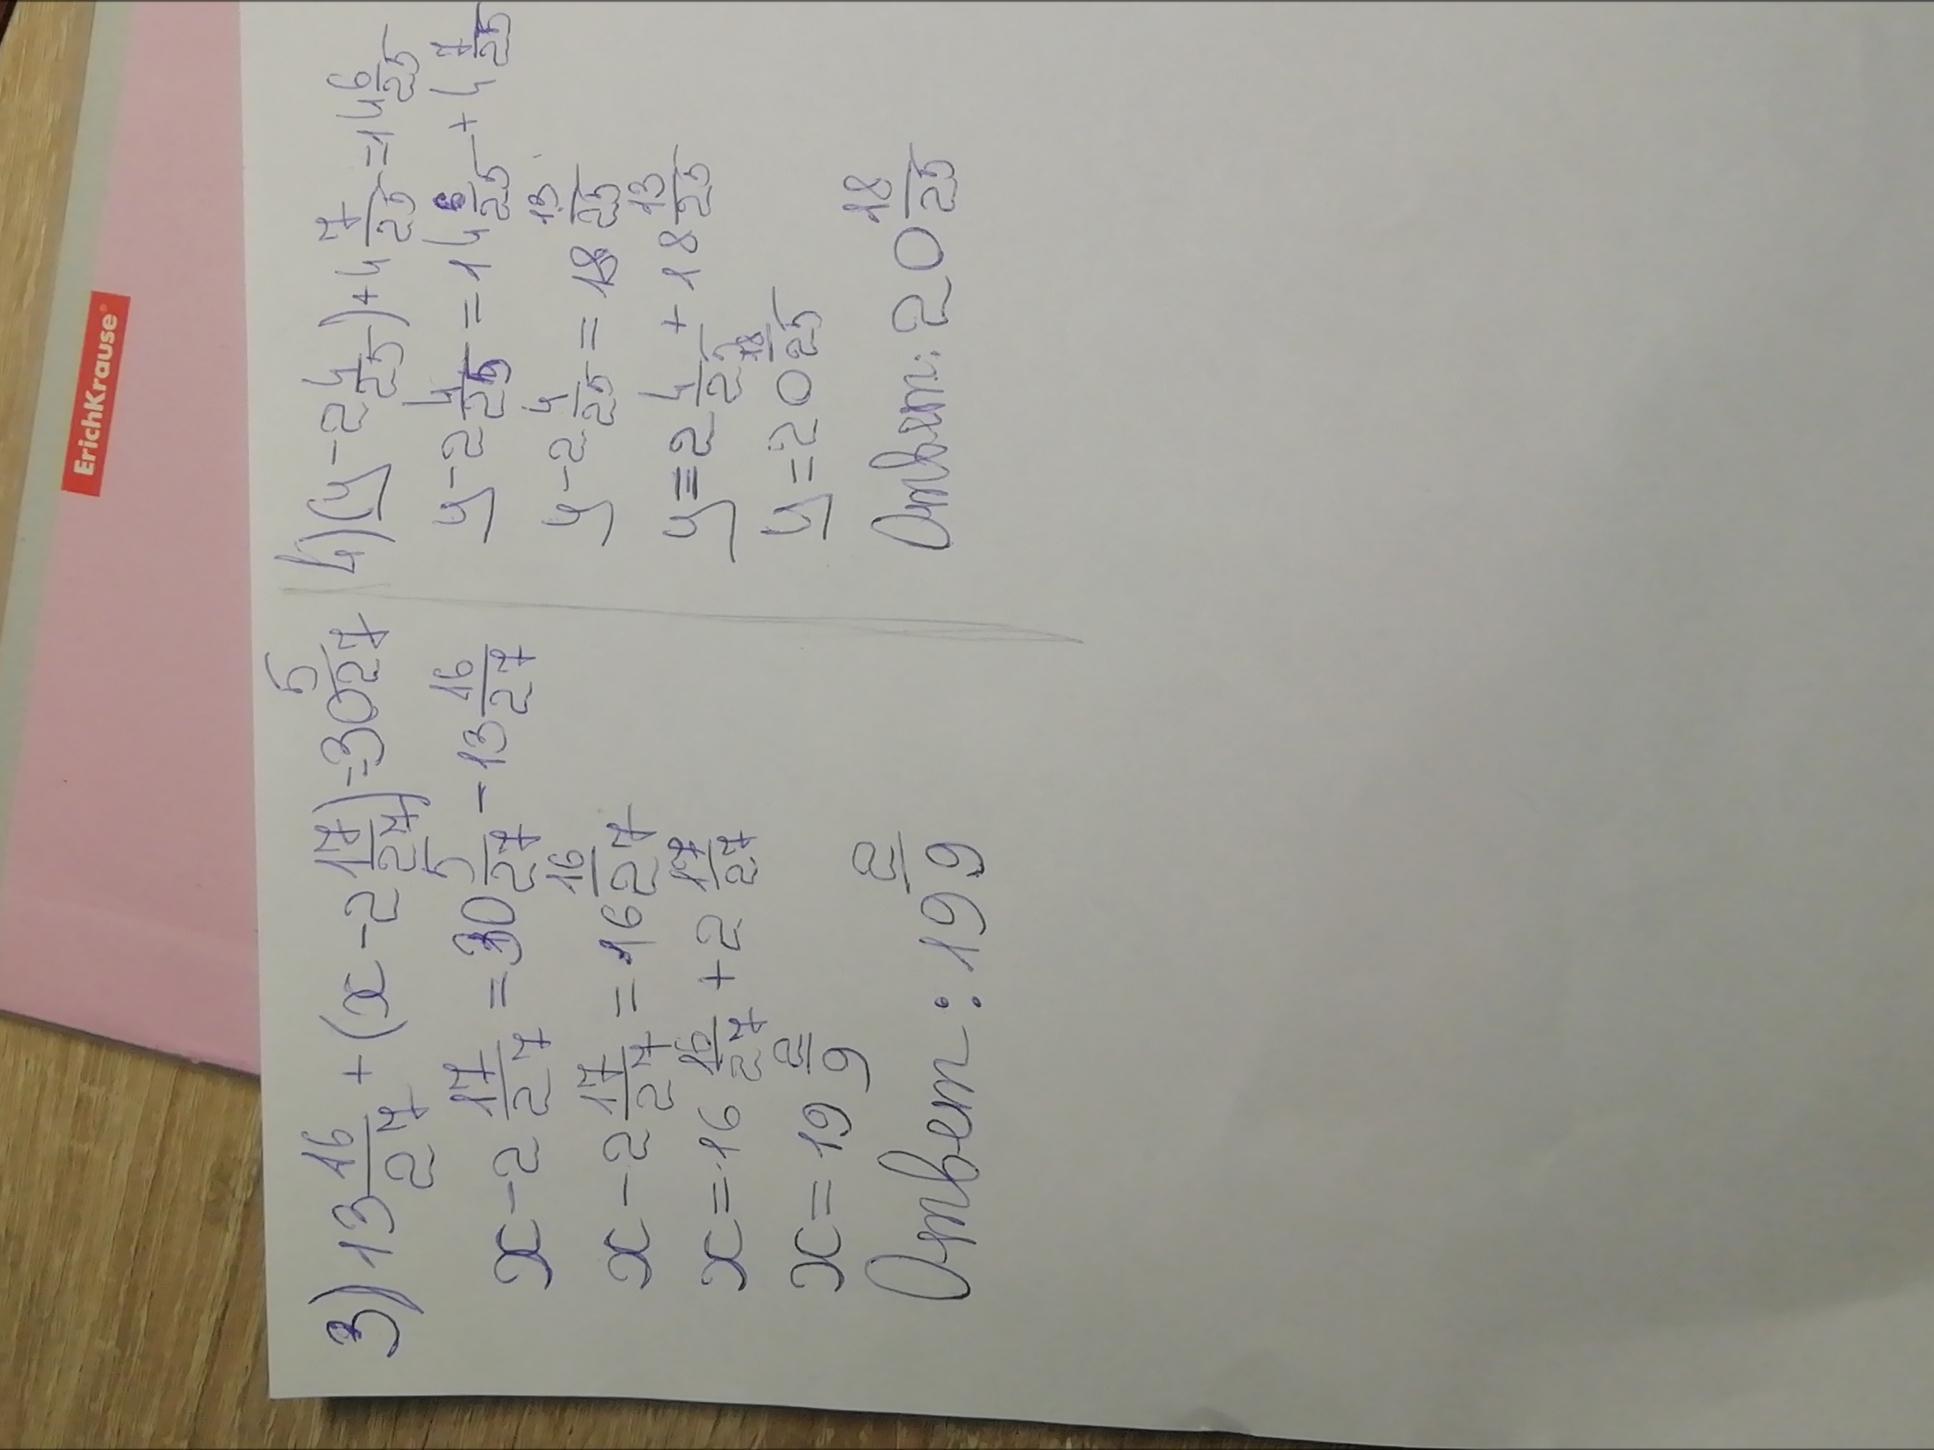 ErichKrause
3) 13 16/27 + (x - 2 17/27) = 30 5/27
x - 2 17/27 = 30 5/27 - 13 16/27
x - 2 17/27 = 16 16/27
x = 16 16/27 + 2 17/27
x = 19 2/9
Ответ: 19 2/9
4) (y - 2 4/25) + 4 7/25 = 14 6/25
y - 2 4/25 = 14 6/25 + 4 7/25
y - 2 4/25 = 18 13/25
y = 2 4/25 + 18 13/25
y = 20 18/25
Ответ: 20 18/25